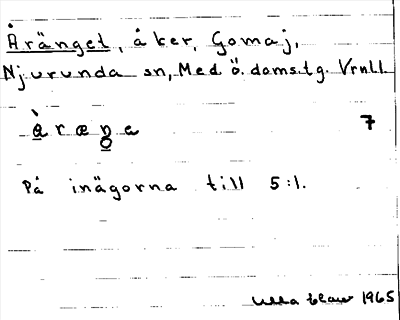 Åränget, åker, Gomaj,
Njurunda sn, Med ö. domstg. Vrnll.
àræŋe 7
På inägorna till 5:1.
Ulla 1965